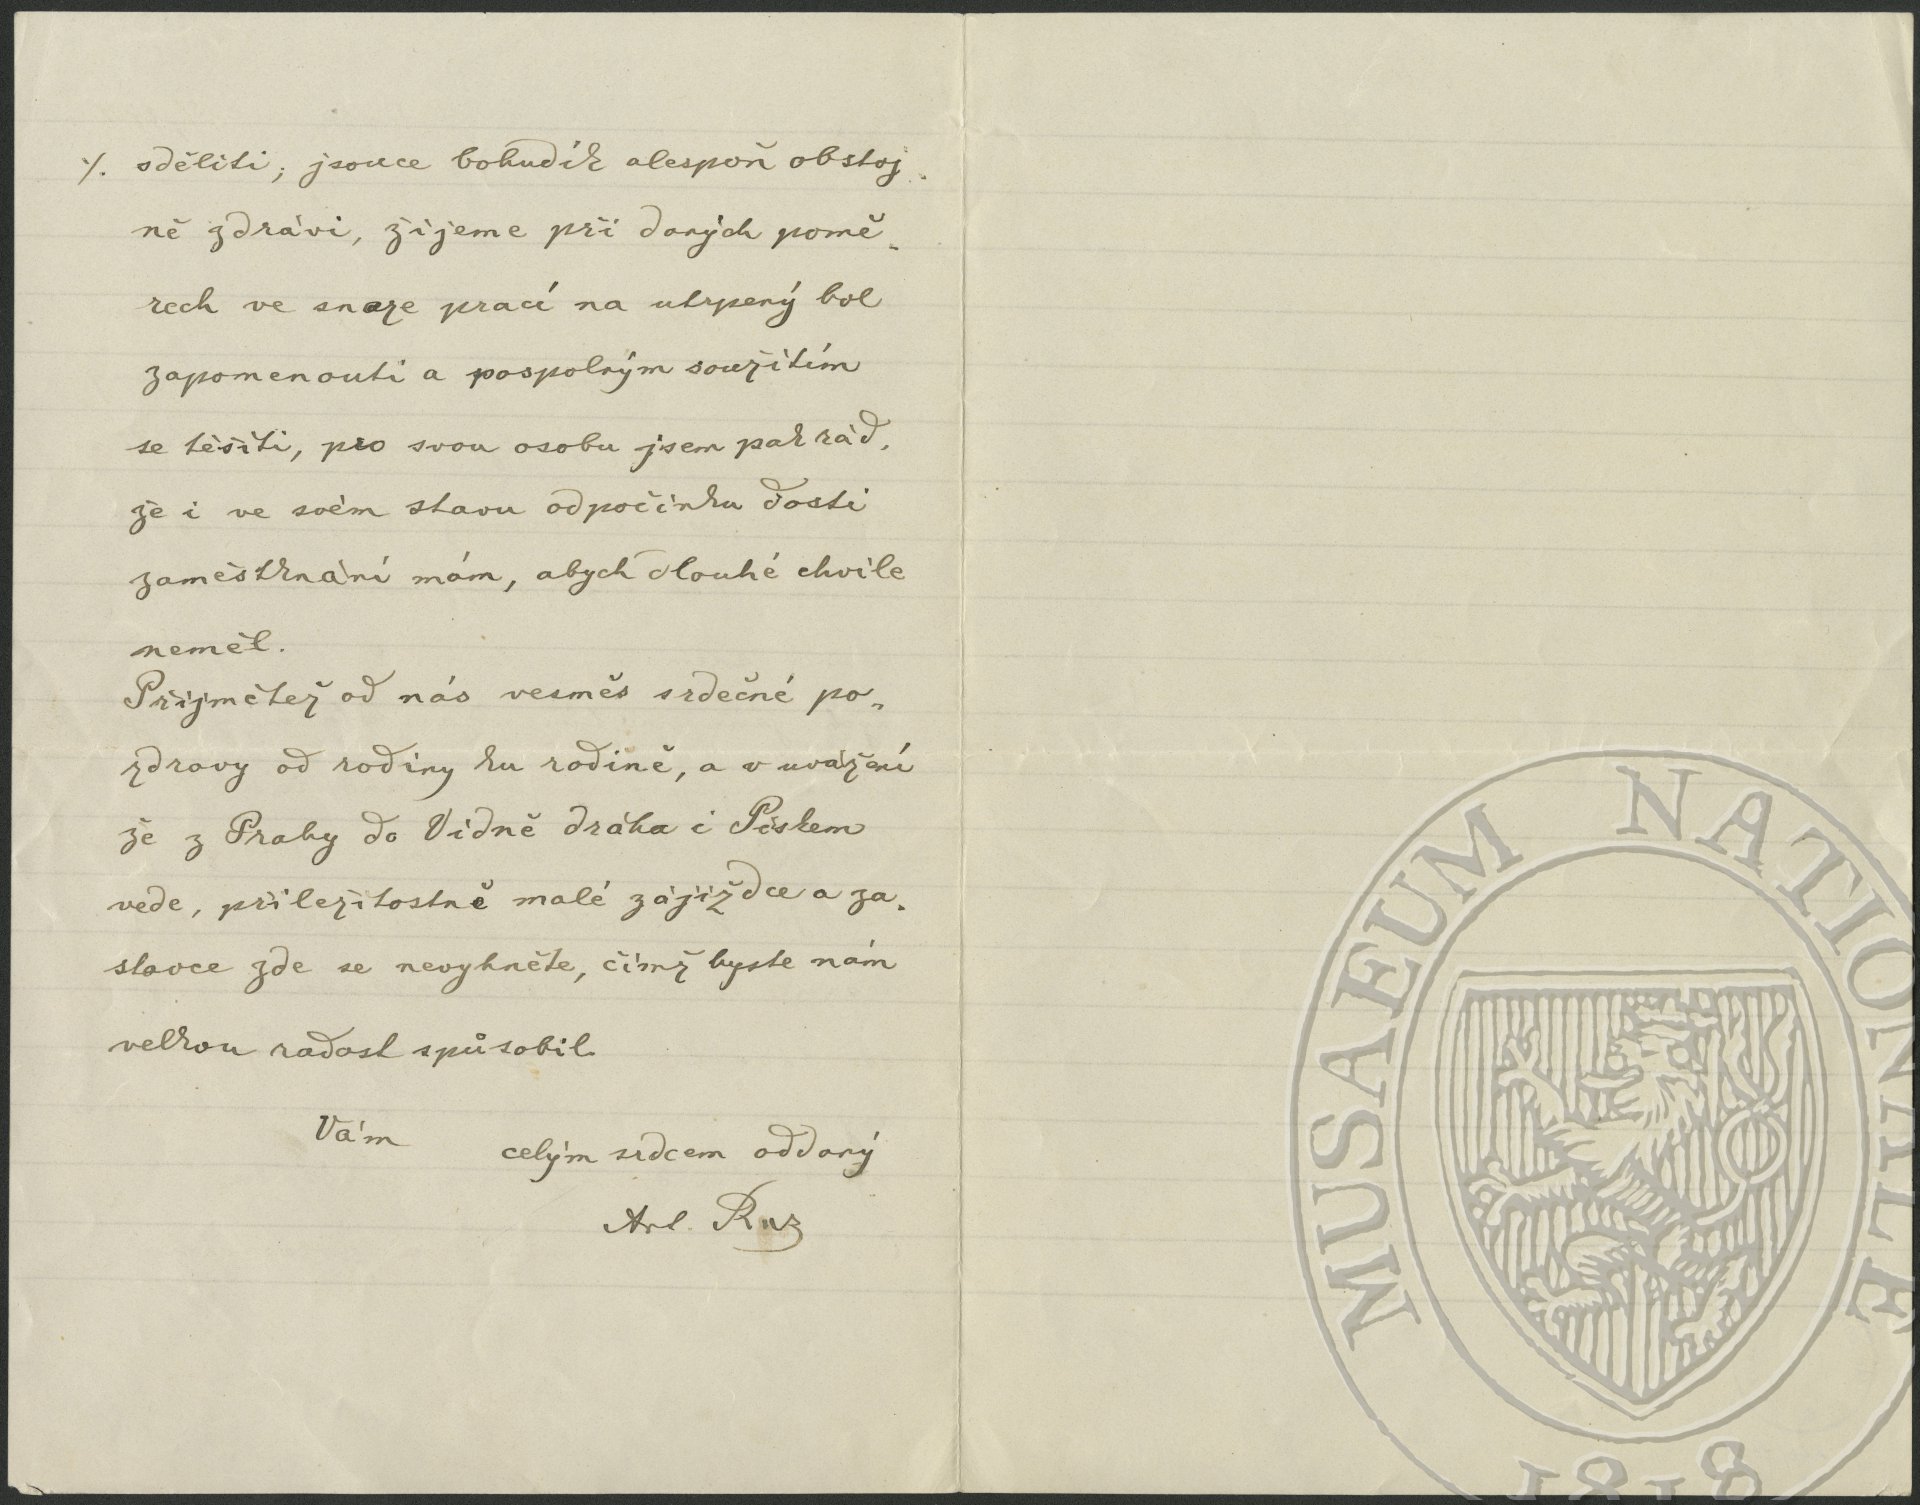 ./. sděliti; jsouce bohudík alespoň obstoj-
ně zdrávi, žijeme při daných pomě-
rech ve snaze prací na utrpený bol
zapomenouti a pospolným soužitím
se těšiti, pro svou osobu jsem pak rád,
že i ve svém stavu odpočinku dosti
zaměstknání mám, abych dlouhé chvíle
neměl.
Přijmětež od nás vesměs srdečné po-
zdravy od rodiny ku rodině, a v uvážení
že z Prahy do Vídně dráha i Pískem
vede, příležitostně malé zájiždce a za-
stavce zde se nevyhněte, čímž byste nám
velkou radost spůsobil.
Vám celým srdcem oddaný
Ant.
MUSAEUM NATIONALE
1818